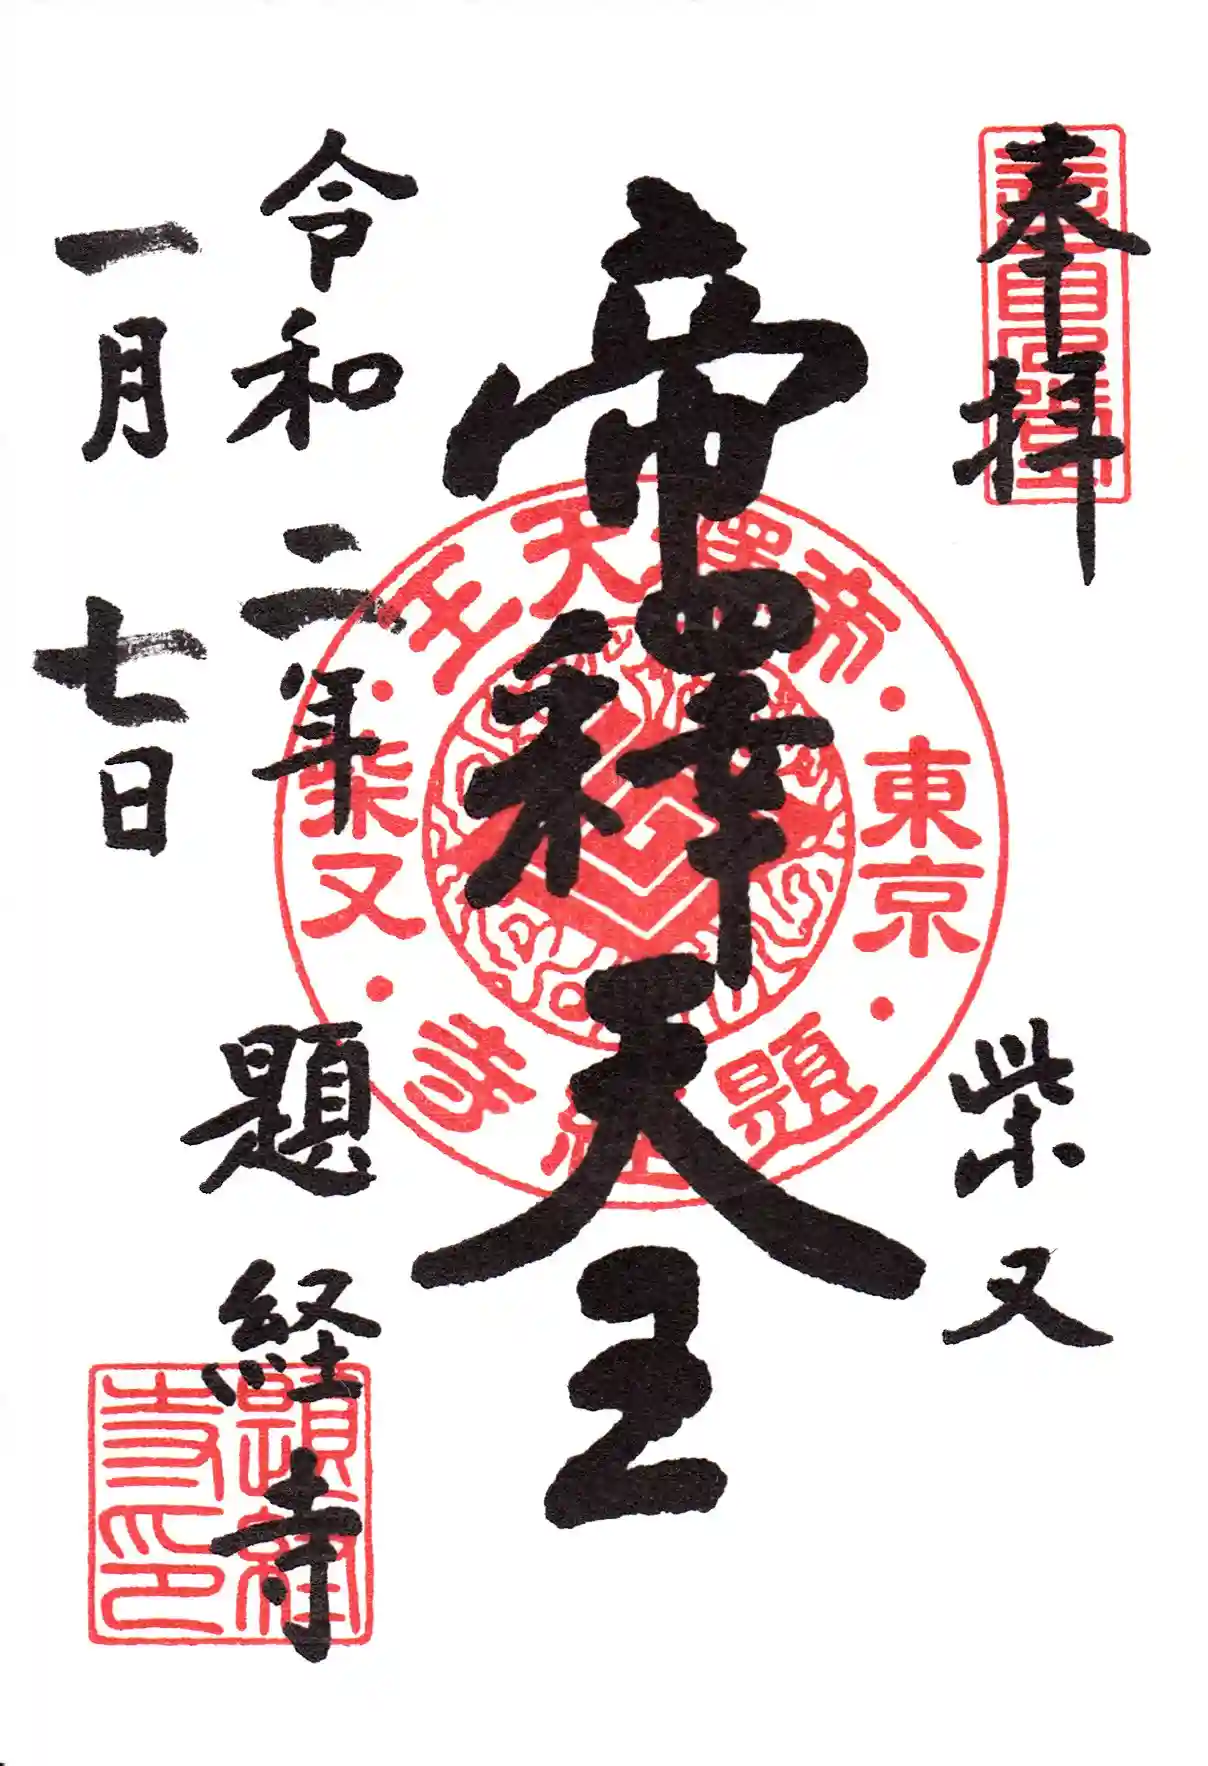 奉拝
柴又
帝釋天王
令和二年
一月七日
題経寺
帝釋天王
東京
柴又
題経寺
題経寺印